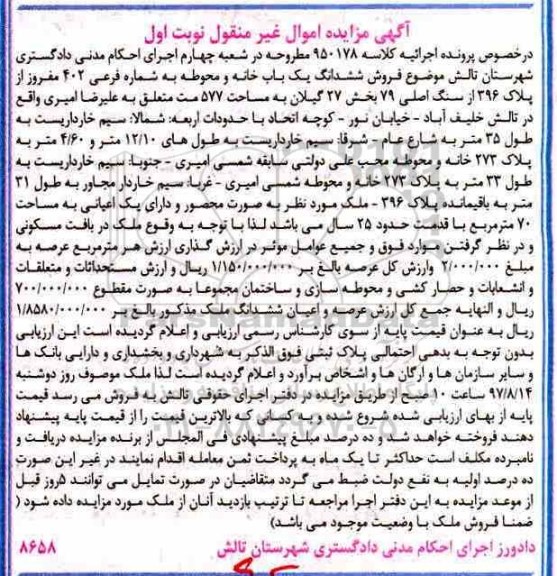 آگهی مزایده اموال غیر منقول نوبت اول
درخصوص پرونده اجرائیه کلاسه ۹۵۰۱۷۸ مطروحه در شعبه چهارم اجرای احکام مدنی دادگستری
شهرستان تالش موضوع فروش ششدانگ یک باب خانه و محوطه به شماره فرعی ۴۰۲ مفروز از
پلاک ۳۹۶ از سنگ اصلی ۷۹ بخش ۲۷ گیلان به مساحت ۵۷۷ مت متعلق به علیرضا امیری واقع
در تالش خلیف آباد - خیابان نور - کوچه اتحاد با حدودات اربعه: شمالا: سیم خارداریست به
طول ۳۵ متر به شارع عام - شرقا: سیم خارداریست به طول های ۱۲/۱۰ متر و ۴/۶۰ متر به
پلاک ۲۷۳ خانه و محوطه محب علی دولتی سابقه شمسی امیری - جنوبا: سیم خارداریست به
طول ۳۳ متر به پلاک ۲۷۳ خانه و محوطه شمسی امیری - غربا: سیم خاردار مجاور به طول ۳۱
متر به باقیمانده پلاک ۳۹۶ - ملک مورد نظر به صورت محصور و دارای یک اعیانی به مساحت
۷۰ مترمربع با قدمت حدود ۲۵ سال می باشد لذا با توجه به وقوع ملک در بافت مسکونی
و در نظر گرفتن موارد فوق و جمیع عوامل موثر در ارزش گذاری ارزش هر مترمربع عرصه به
مبلغ ۲/۰۰۰/۰۰۰ وارزش کل عرصه بالغ بر ۱/۱۵۰/۰۰۰/۰۰۰ ریال و ارزش مستحدثات و متعلقات
و انشعابات و حصار کشی و محوطه سازی و ساختمان مجموعا به صورت مقطوع ۷۰۰/۰۰۰/۰۰۰
ریال و النهایه جمع کل ارزش عرصه و اعیان ششدانگ ملک مذکور بالغ بر ۱/۸۵۸۰/۰۰۰/۰۰۰
ریال به عنوان قیمت پایه از سوی کارشناس رسمی ارزیابی و اعلام گردیده است این ارزیابی
بدون توجه به بدهی احتمالی پلاک ثبتی فوق الذکر به شهرداری و بخشداری و دارایی بانک ها
و سایر سازمان ها و ارگان ها و اشخاص برآورد و اعلام گردیده است لذا ملک موصوف روز دوشنبه
۹۷/۸/۱۴ ساعت ۱۰ صبح از طریق مزایده در دفتر اجرای حقوقی تالش به فروش می رسد قیمت
پایه از بهای ارزیابی شده شروع شده و به کسانی که بالاترین قیمت را از قیمت پایه پیشنهاد
دهند فروخته خواهد شد و ده درصد مبلغ پیشنهادی فی المجلس از برنده مزایده دریافت و
نامبرده مکلف است حداکثر تا یک ماه به پرداخت ثمن معامله اقدام نمایند در غیر این صورت
ده درصد اولیه به نفع دولت ضبط می گردد متقاضیان در صورت تمایل می توانند ۵روز قبل
از موعد مزایده به این دفتر اجرا مراجعه تا ترتیب بازدید آنان از ملک مورد مزایده داده شود (
ضمنا فروش ملک با وضعیت موجود می باشد)
دادورز اجرای احکام مدنی دادگستری شهرستان تالش ۸۶۵۸